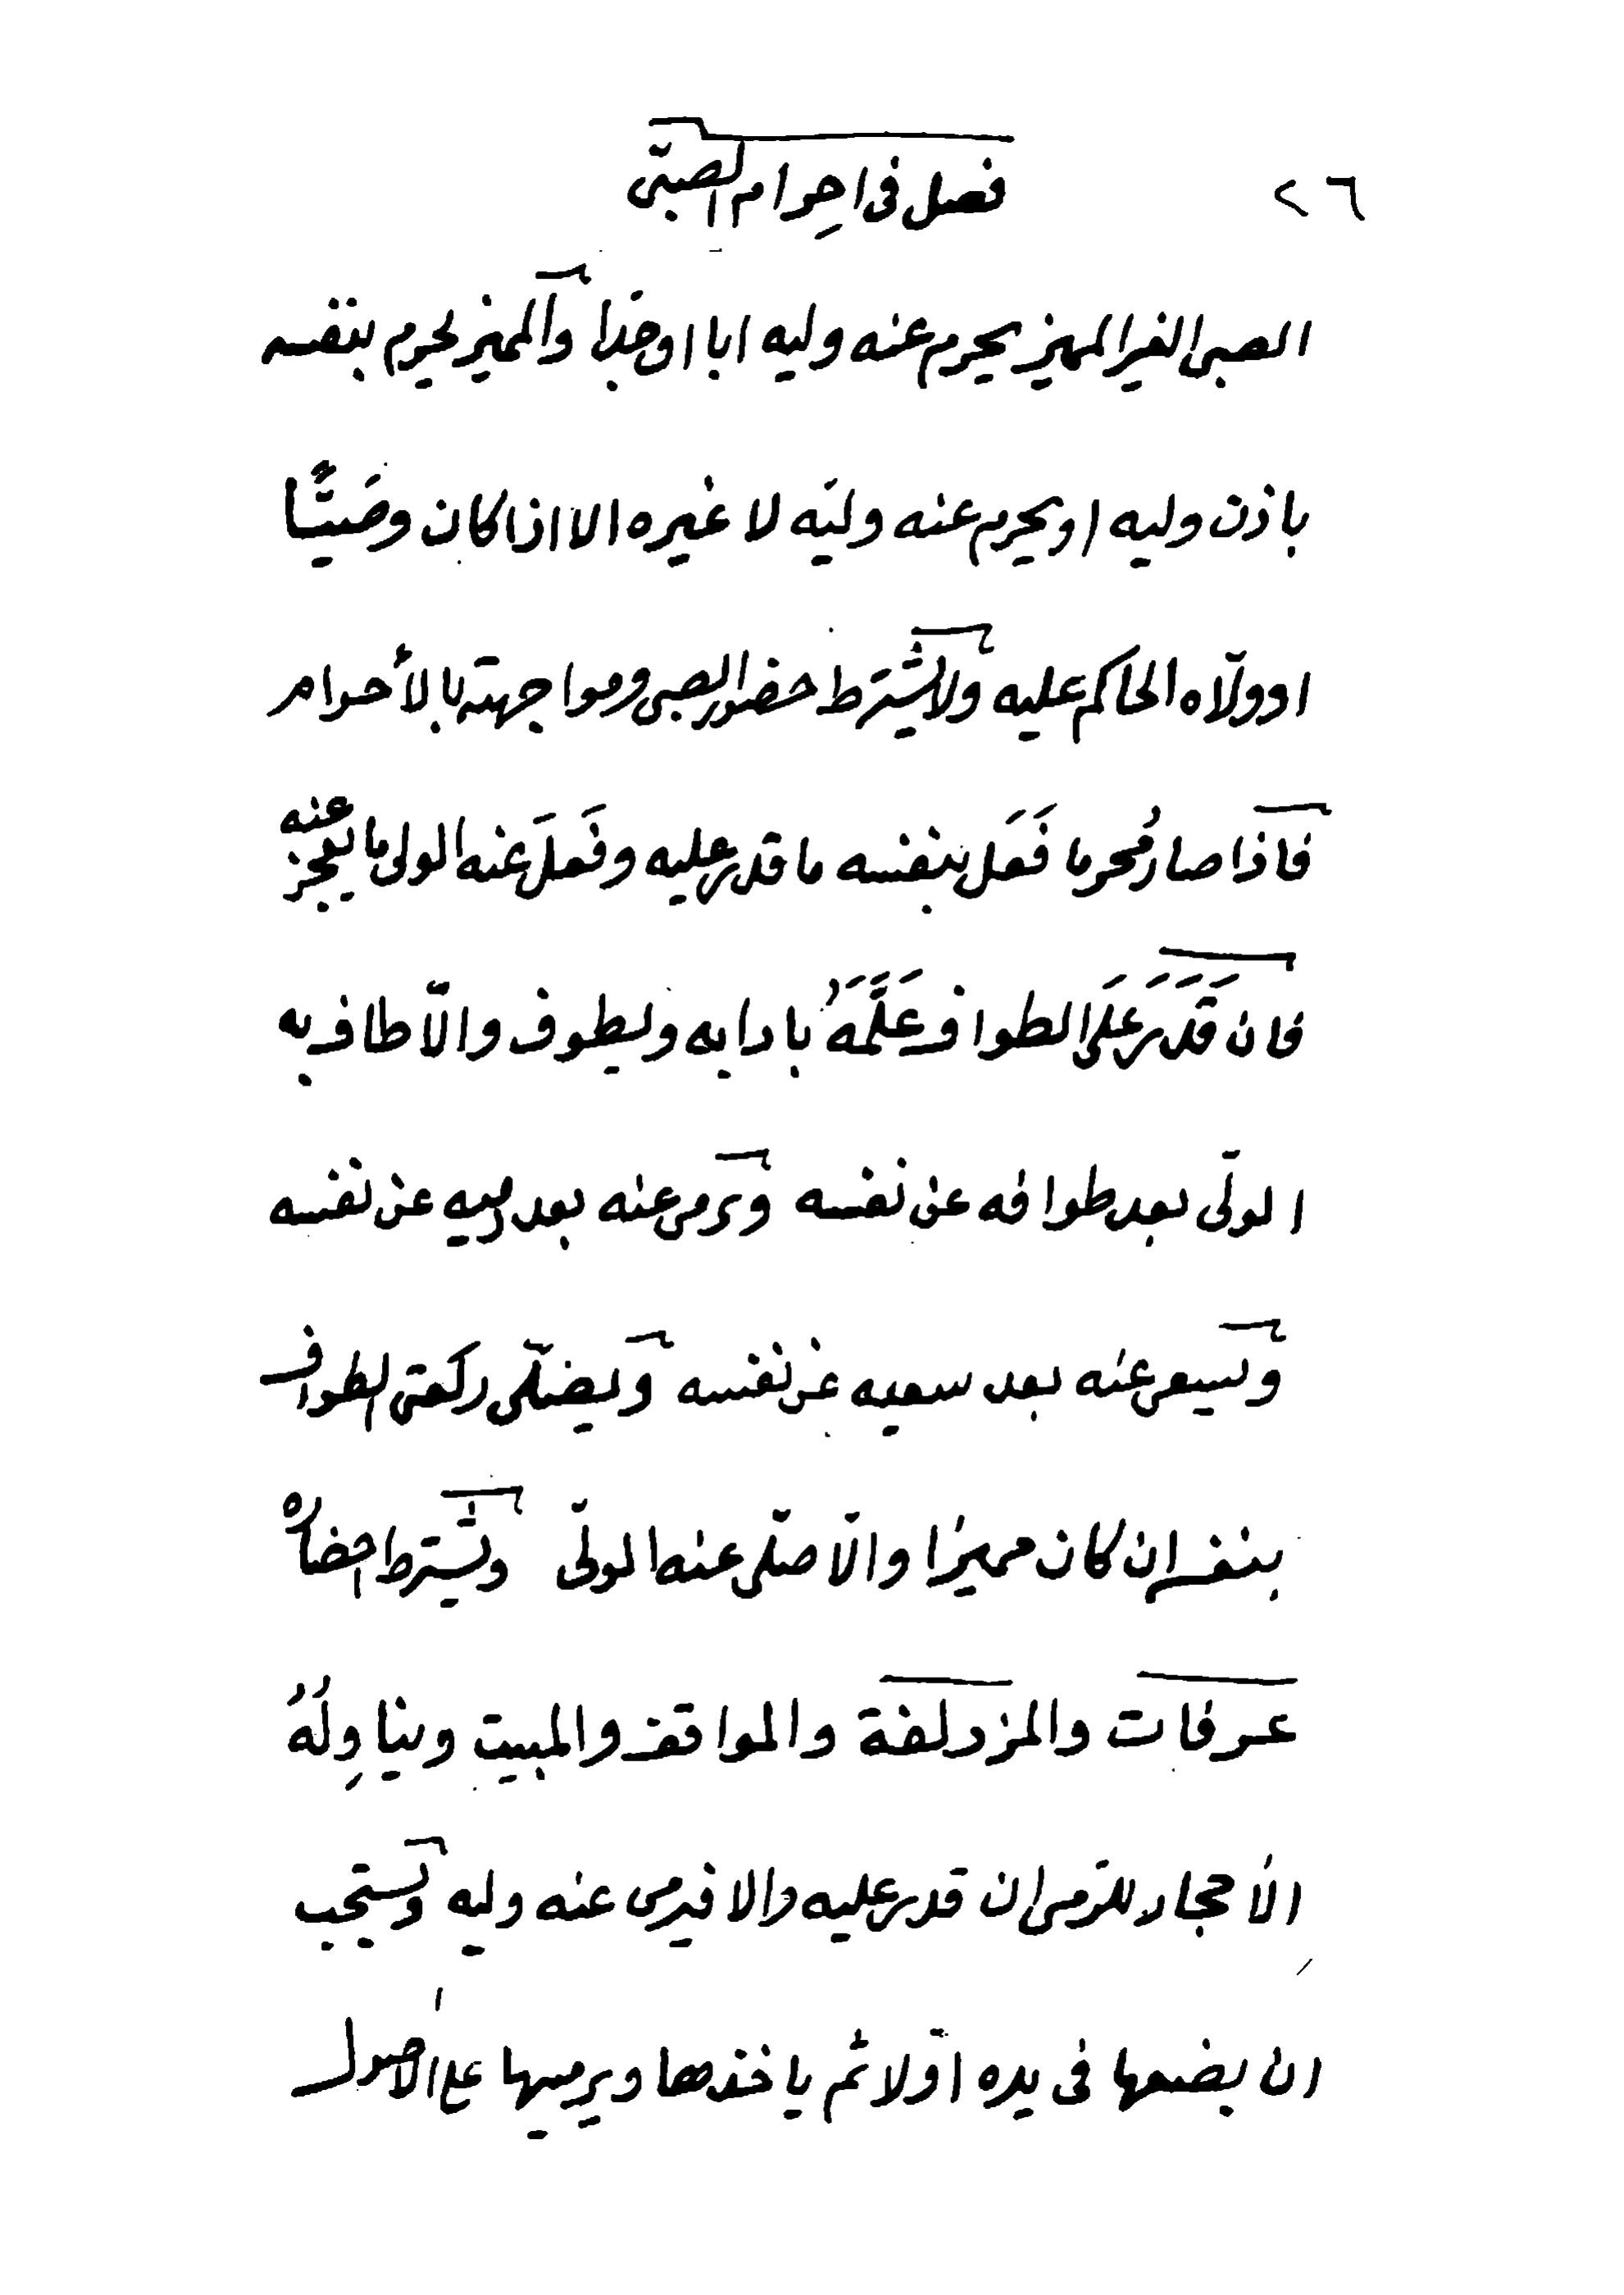 ٢٦
فصل فى احِرام الصبىّ
الصبى الغير المميز يحرم عنه وليه ابا اوجدا والمميز يحرم بنفسه
باذن وليه او يحرم عنه وليّه لا غيره الا اذا كان وصَيًّا
اوولّاه الحاكم عليه ولا يشترط حضور الصبى ومواجهته بالأحرام
فاذا صار مُحرما فَعَل بنفسه ما قدر عليه وفَعلَ عنه الولى ما يعجز عنه
فان قَدَرَ عَلَى الطواف عَلَّمَهُ بادابه وليطوف والّا طاف به
الولّى بعد طوافه عن نفسه ويرمى عنه بعد رميه عن نفسه
ويسعى عنه بعد سعيه عن نفسه ويصلّى ركعتى الطواف
بنفسه ان كان مميزا والّا صلّى عنه الولّى ويشترط احضارُهْ
عرفات والمزدلفة والمواقف والمبيت ويناوِلُهُ
الأحجار للرّمى ان قدر عليه والا فيرمى عنه وليه ويستحب
ان يضعها فى يده اوّلا ثم ياخذها ويرميها على الاصول